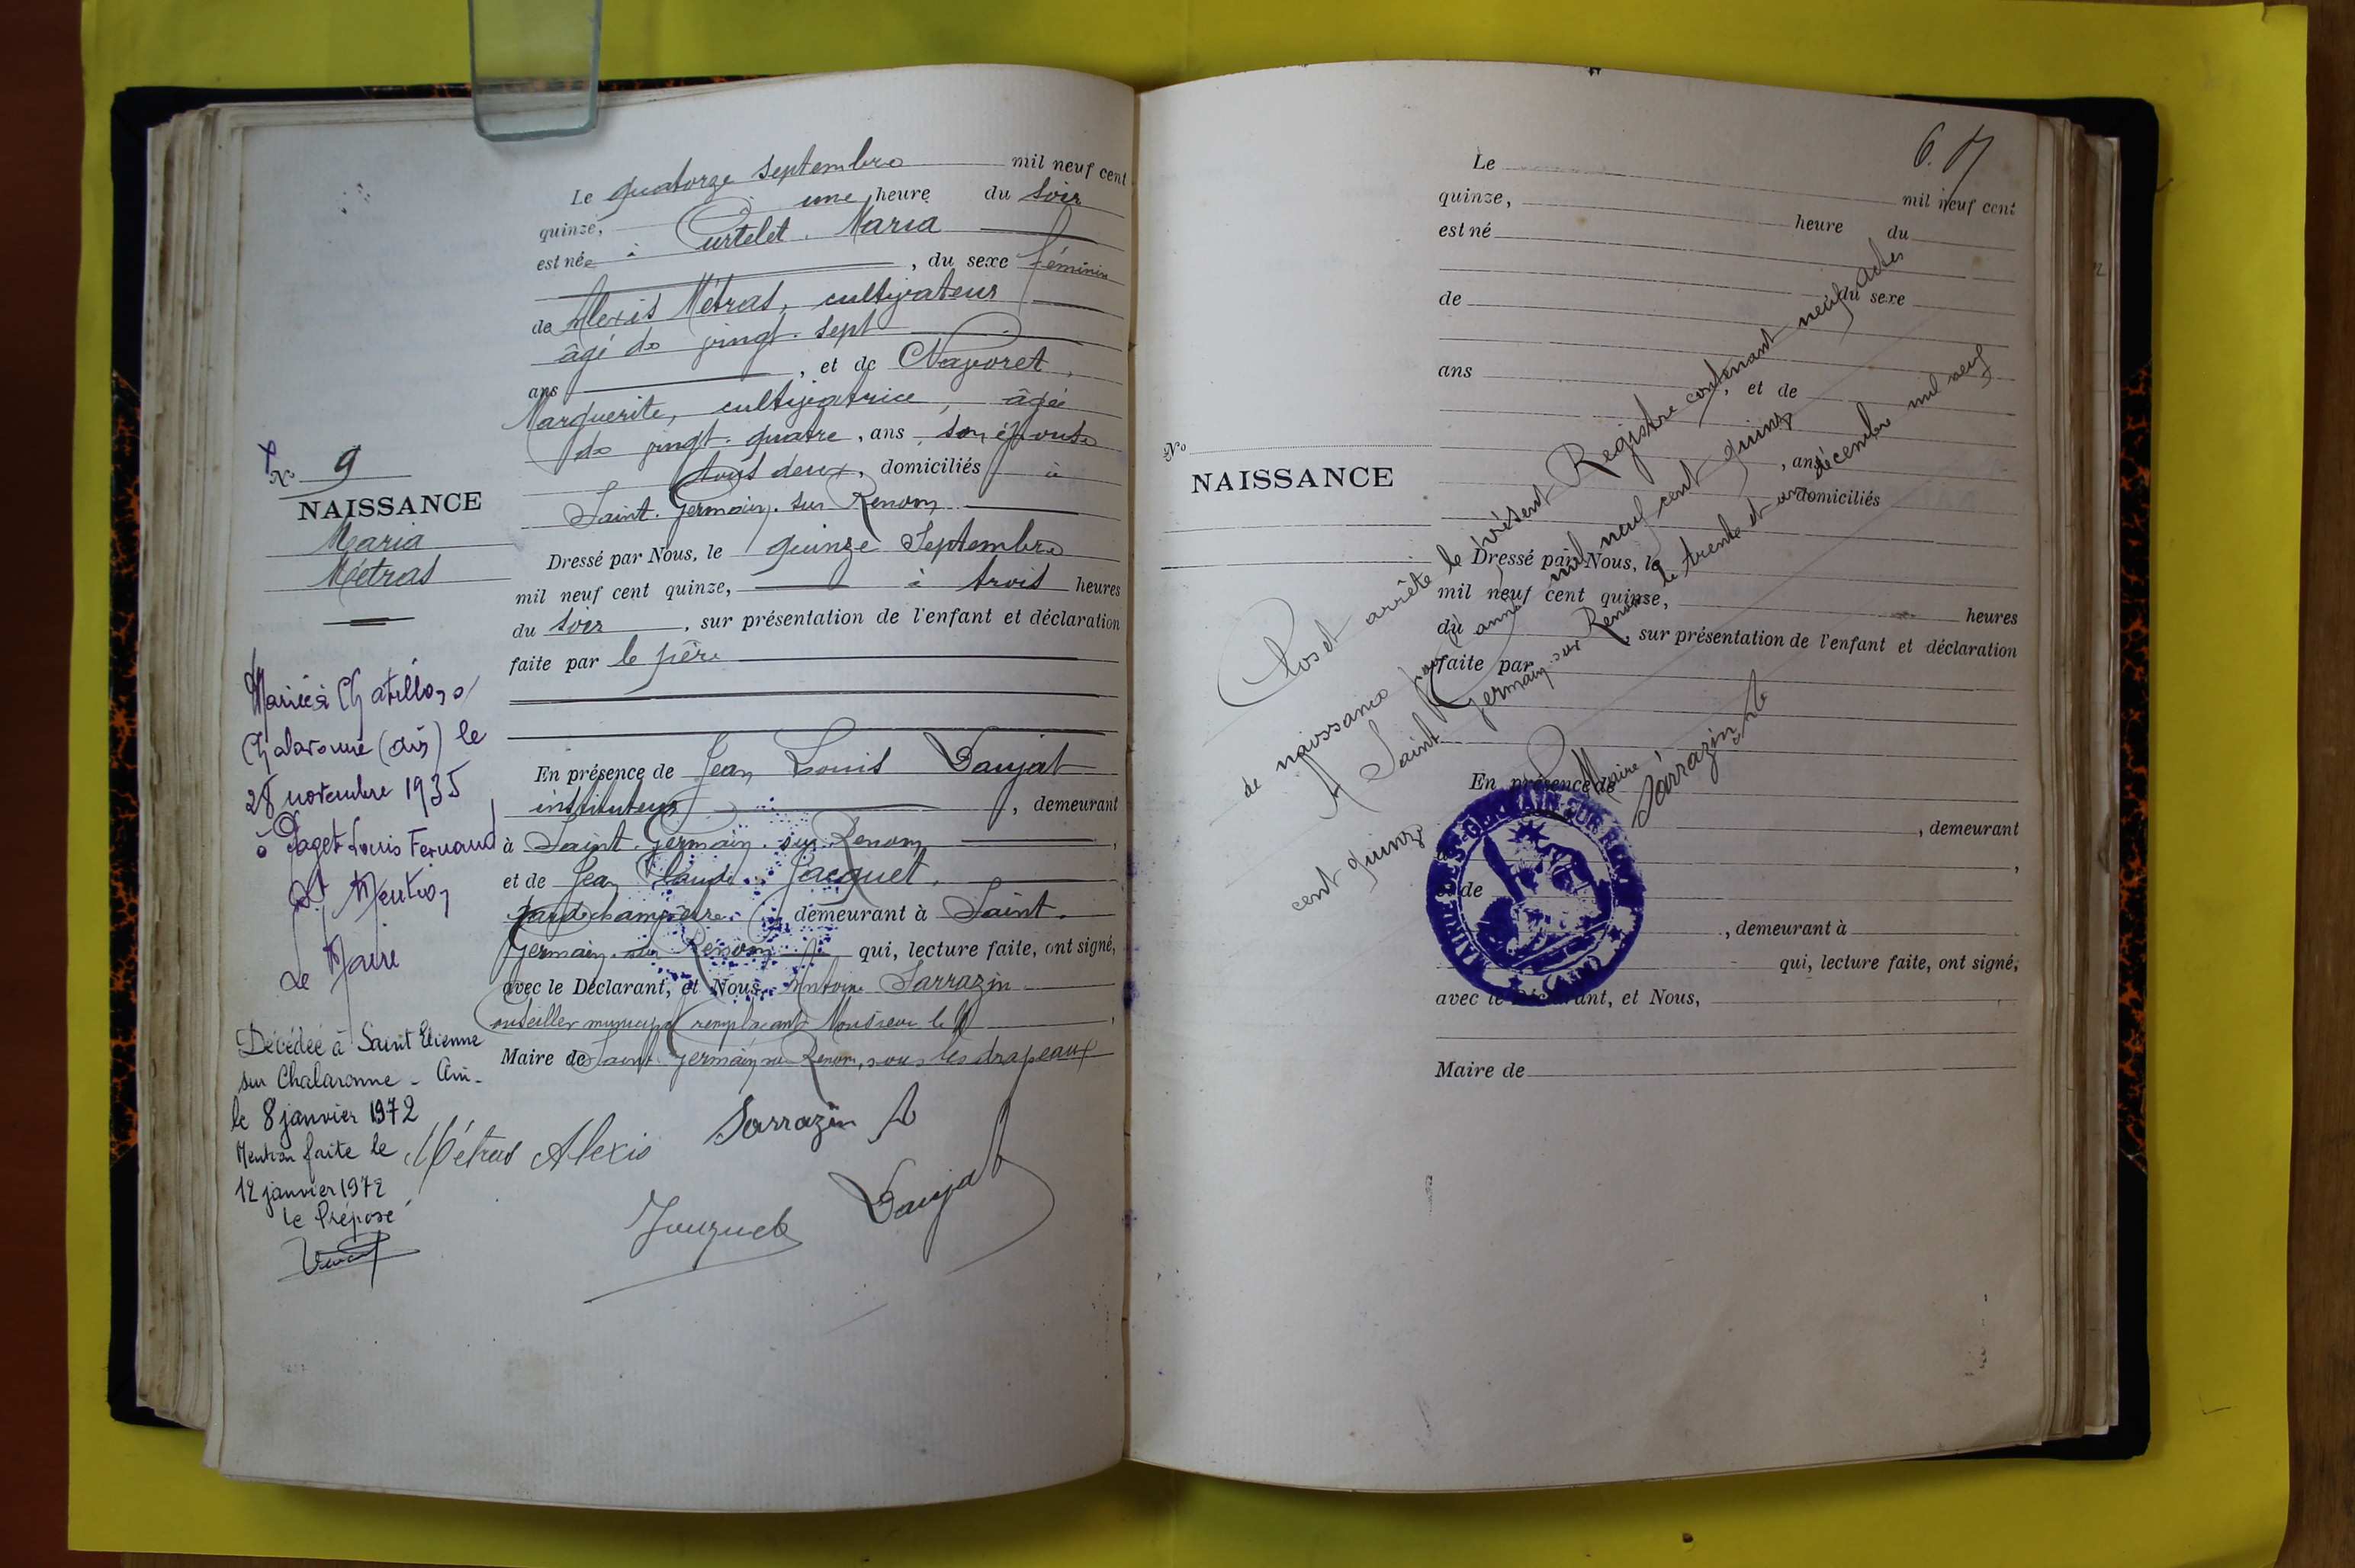 Le quatorze septembre mil neuf cent
quinze, à une heure du soir
est née à Curtelet. Maria
, du sexe féminin
de Alexis Métras, cultivateur
âgé de vingt. sept
ans , et de Nayoret,
Marguerite, cultivatrice, âgée
de vingt. quatre, ans, son épouse
tous deux, domiciliés à
Saint. Germain. sur Renom
Dressé par Nous, le quinze Septembre
mil neuf cent quinze, à trois heures
du soir, sur présentation de l'enfant et déclaration
faite par le père
En présence de Jean Louis Daujat
instituteur, demeurant
à Saint. Germain. sur Renom,
et de Jean Claude Jacquet,
garde champêtre, demeurant à Saint.
Germain. sur Renom qui, lecture faite, ont signé,
avec le Déclarant, et Nous, Antoine Sarrazin
Conseiller municipal remplaçant Monsieur le
Maire de Saint Germain sur Renom, sous les drapeaux
Métras Alexis
Sarrazin A
Jacquet
Daujat
No 9
NAISSANCE
Maria
Métras
Mariée à Chatillon s/
Chalaronne (Ain) le
28 novembre 1935
à Paget Louis Fernand
Mention
Le Maire
Décédée à Saint Etienne
sur Chalaronne - Ain -
le 8 janvier 1972
Mention faite le
12 janvier 1972
le Préposé
6.
Le mil neuf cent
quinze, heure du
est né
du sexe
de
ans , et de
, ans
domiciliés
No
NAISSANCE
Dressé par Nous, le
mil neuf cent quinze, heures
du , sur présentation de l'enfant et déclaration
faite par
En présence de
, demeurant
,
et de
, demeurant à
qui, lecture faite, ont signé,
avec le Déclarant, et Nous,
Maire de
Clos et arrêté le présent Registre contenant neuf actes
de naissance pour l'année mil neuf cent quinze
A Saint Germain. sur Renom le trente et un décembre mil neuf
cent quinze
Maire
Sarrazin A
MAIRIE DE St GERMAIN SUR RENOM
(AIN)